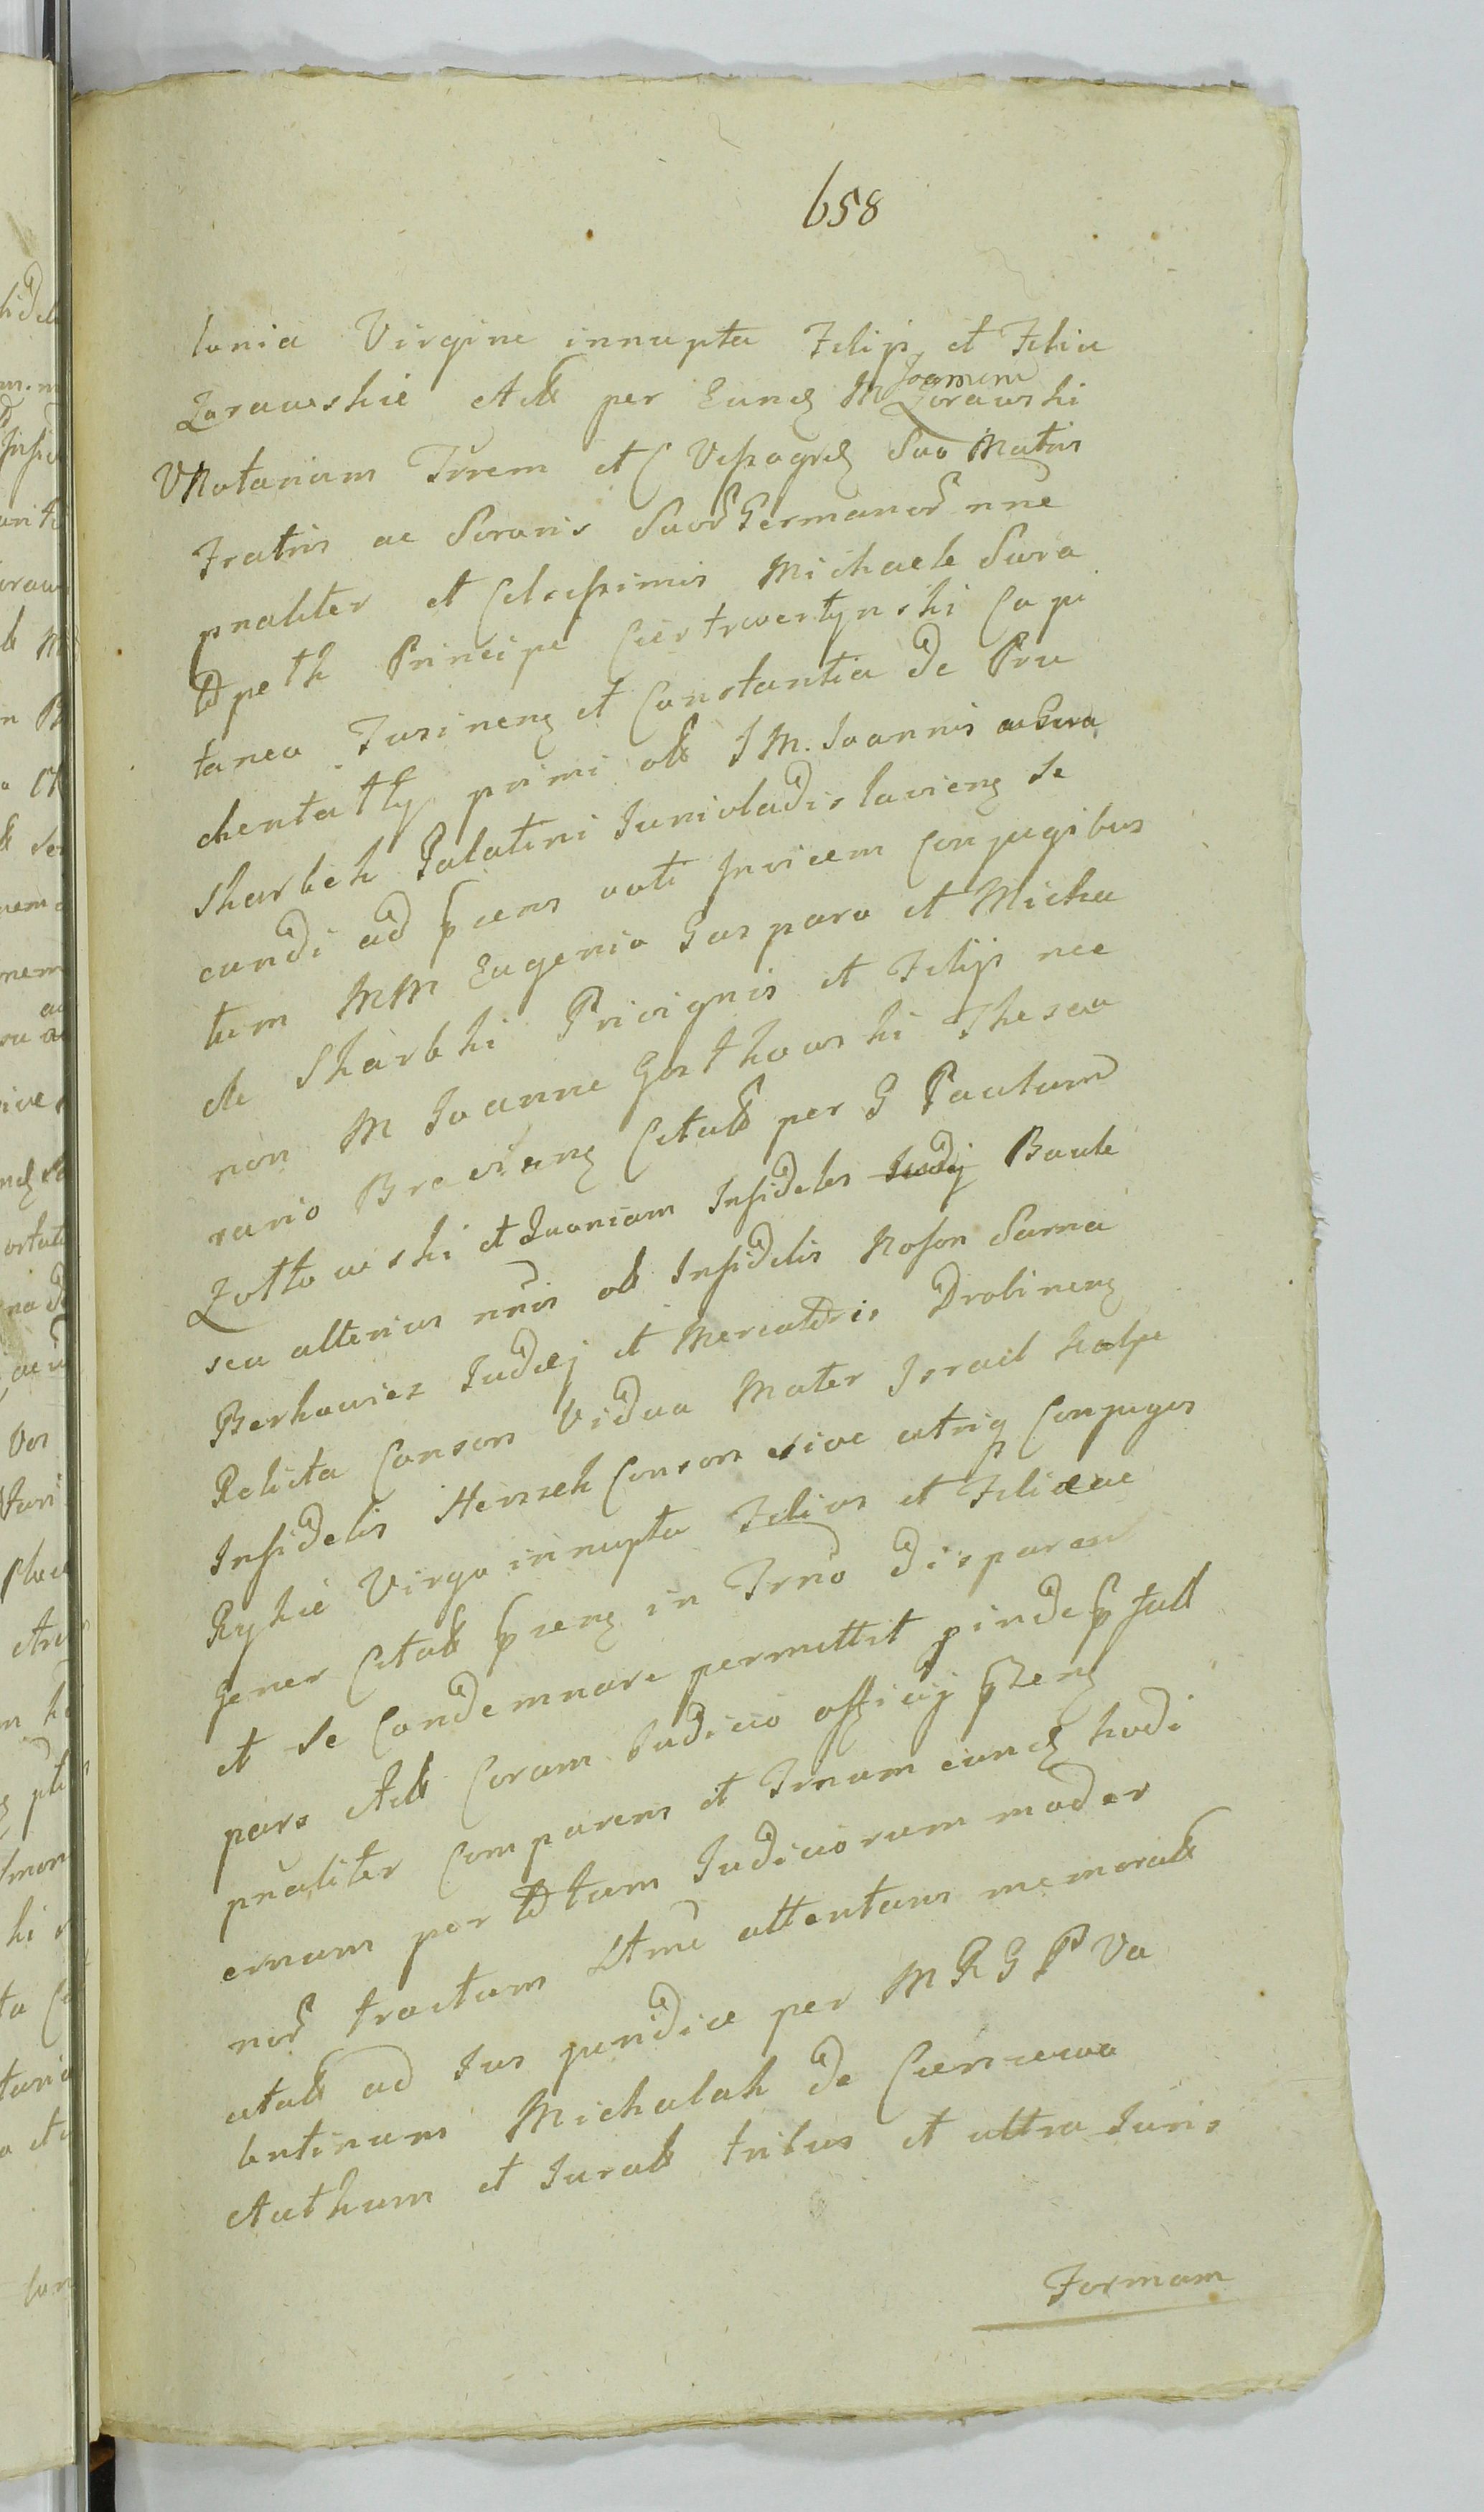 658
lonia Virgine innupta Filijs et Filia
Joannem
Zorawskie Actt per Eund M Zorawski
VNotarium Trrem et C Vissogrd Suo Matris
Fratris ac Sororis Suor Germanor nne
pnaliter et Celsissimis Michaele Swia
tpeth Principe Czertwertynski Capi
taneo Jusinens et Constantia de Pru
chentatty primi ott J M. Joannis a Gura
Skarbek Palatini Junivladislaviens Se
cundi ad psens voti Invicem Conjugibus
tum MM Eugenio Gasparo et Micha
ele Skarbki Privignis et Filijs nec
non M Joanne Gosthowski Thesau
rario Brestens Citatt per G Paulum
Zottowski et Juoniam Infideles Baule
seu alterius nnis ott Infidelis Noson Sarna
Berkowicz Judæj et Mercatoris Drobinens
Relicta Consors Vidua Mater Israel Halpe
Infidelis Herszek Consors sive utriq Conjuges
Rykie Virgo innupta Filius et Filiæ ac
Gener Citatt psens in Trno disparen
et Se Condemnare permittit pindeptatt
pars Actt Coram Judicio officij pszens
pnaliter Comparens et Trnum eund hodi
ernum per ttum Judiciorum moder
nor tractum Lttme attentans memoratt
citatt ad Jus juridice per M R G P Va
lentinum Michalak de Czerczewo
Authum et Juratt tribus et ultra Juris
Formam